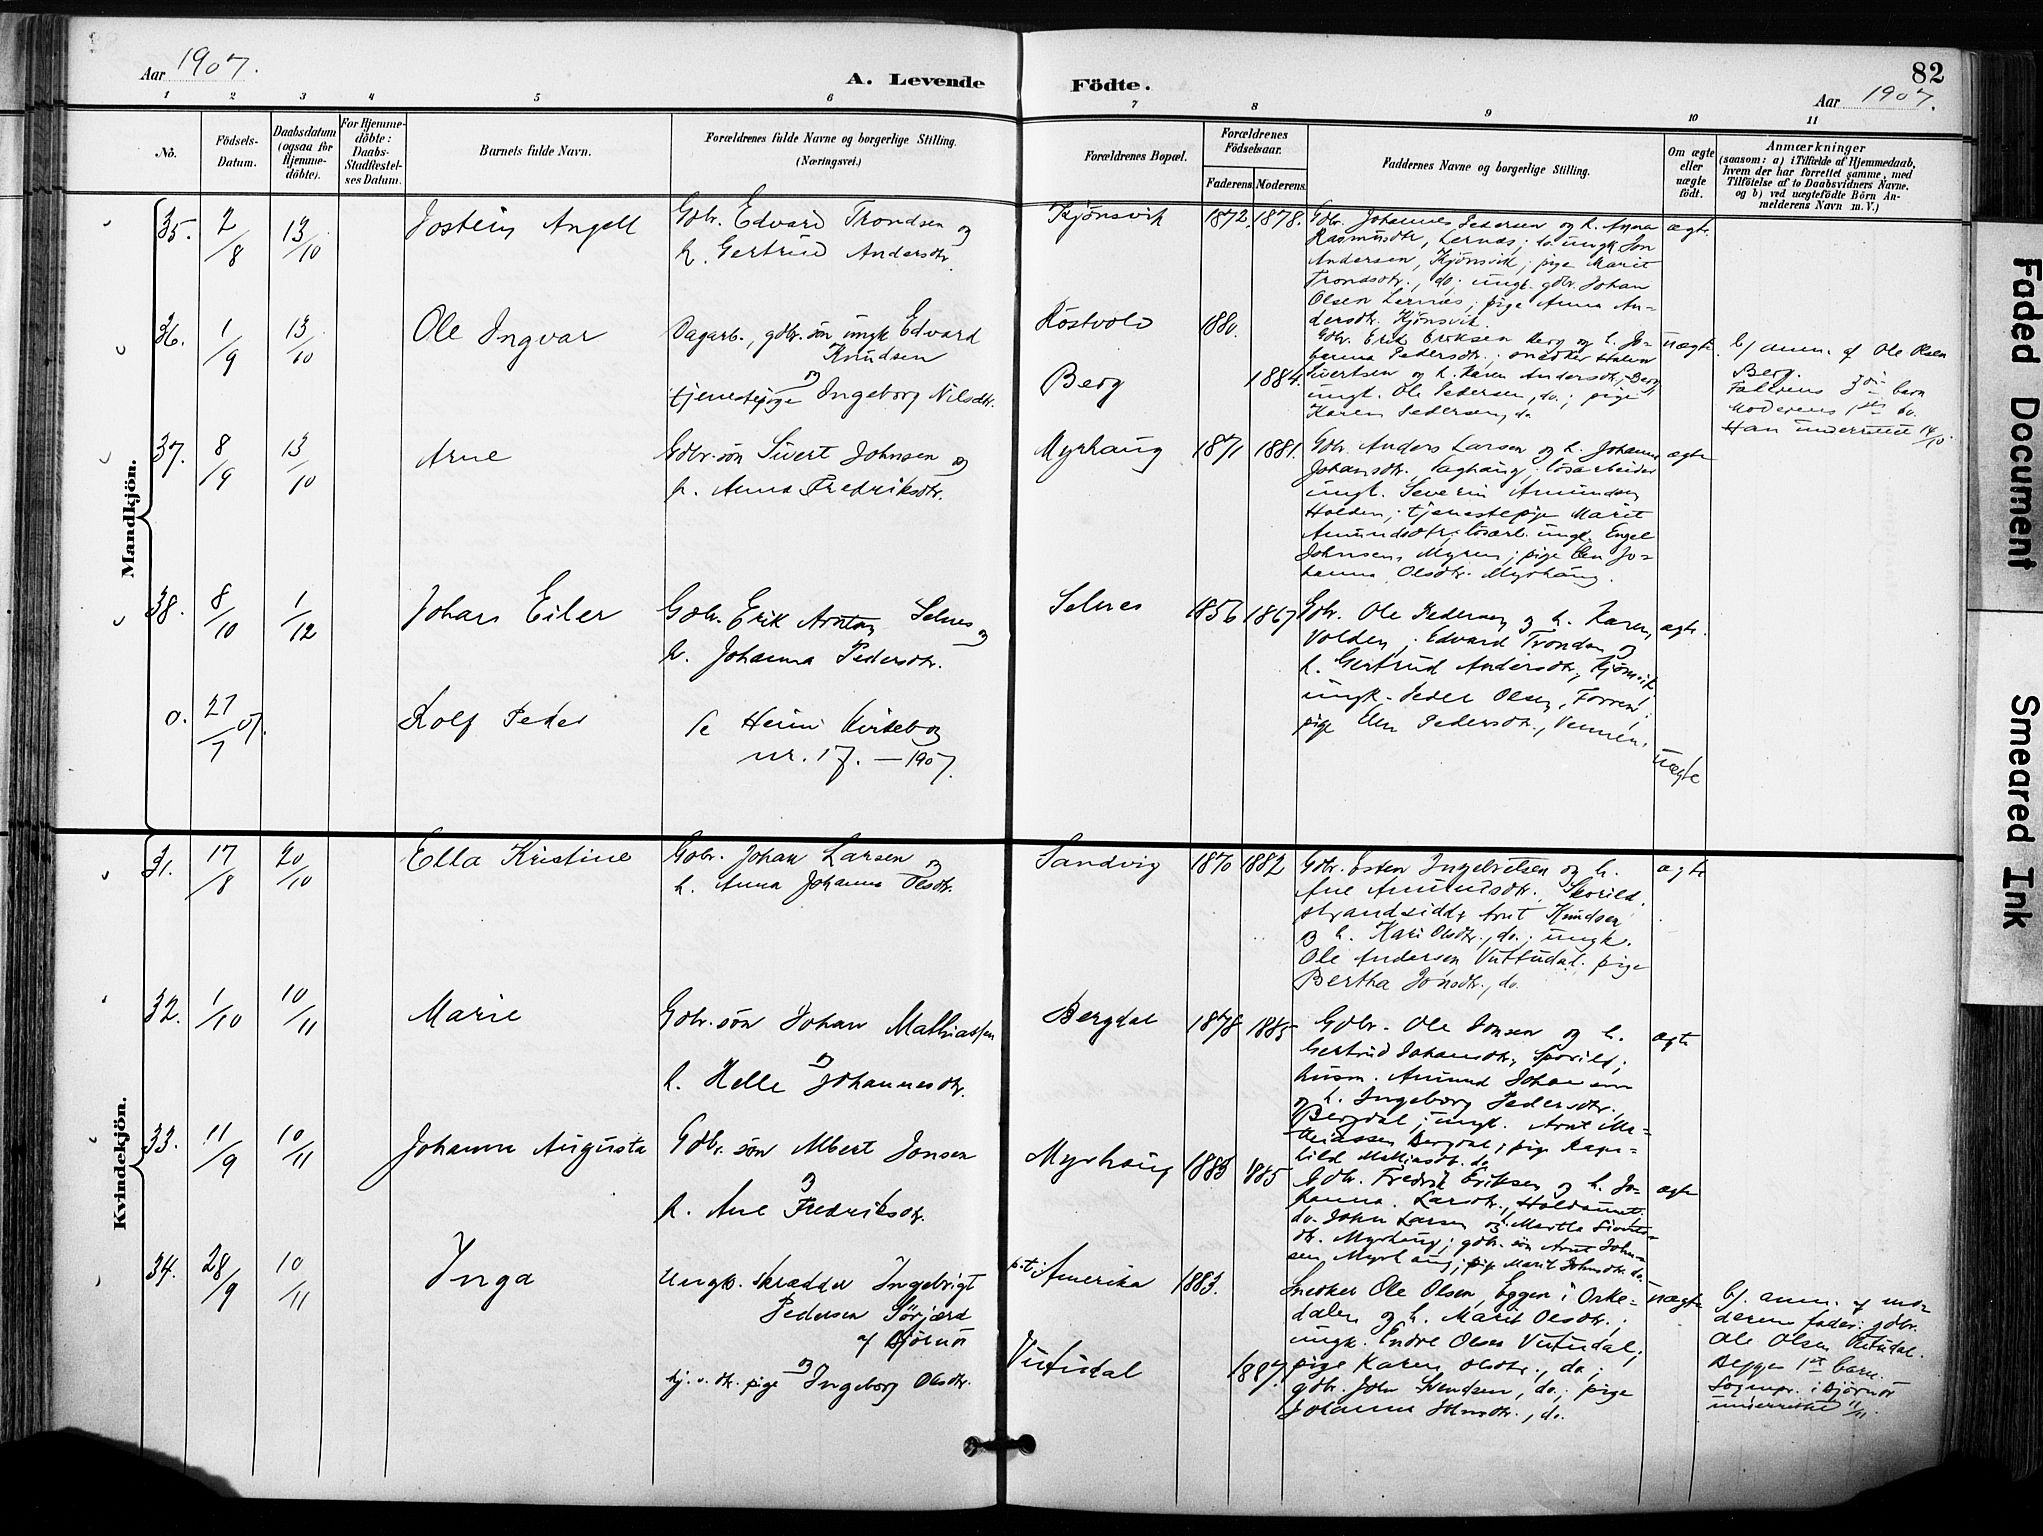 Aar 1907.
A. Levende Födte.
82
Aar 1907.
1 2 3 4 5 6 7 8 9 10 11
No.
Födsels-Datum.
Daabsdatum (ogsaa for Hjemme-döbte).
For Hjemme-döbte: Daabs-Stadfæstel-ses Datum.
Barnets fulde Navn.
Forældrenes fulde Navne og borgerlige Stilling. (Næringsvei.)
Forældrenes Bopæl.
Forældrenes Födselsaar.
Faderens. Moderens.
Faddernes Navne og borgerlige Stilling.
Om ægte eller uægte födt.
Anmærkninger
(saasom: a) i Tilfælde af Hjemmedaab,
hvem der har forrettet samme, med
Tilföielse af to Daabsvidners Navne.
og b) ved uægtefödte Börn An-
melderens Navn m. V.)
Mandkjön.
35. 2/8 13/10 Jostein Angell
Gdbr. Edvard Trondsen og
h. Gertrud Andersdtr.
Kjönsvik 1872. 1878.
Gdbr. Johannes Pedersen og h. Anna
Rasmusdtr., Lernæs; ungk. Jon
Andersen, Kjönsvik; pige Marit
Trondsdtr., do; ungk. gdbr. Johan
Olsen Lernæs; pige Anna An-
dersdtr. Kjönsvik.
ægte
36. 1/9 13/10 Ole Ingvar
Dagarb., gdbr. sön ungk. Edvard
Knudsen
og
tjenestepige Ingeborg Nilsdtr.
Röstvold 1880.
Berg 1884.
Gdbr. Erik Eriksen Berg og h. Jo-
hanna Pedersdtr.; snedker
Sivertsen og h. Karen Andersdtr., Berg
ungk. Ole Pedersen, do.; pige
Karen Pedersen, do
uægte
b) anm. af Ole Olsen
Berg.
Faderens 3die barn
Moderens 1ste do.
Han underrettet 14/10.
37. 8/9 13/10 Arne
Gdbr. sön Sivert Johnsen og
h. Anna Fredriksdtr.
Myrhaug 1871 1881.
Gdbr. Anders Larsen og h. Johanna
Johansdtr. ; lösarbeider
ungk. Severin Amundsen
Holden; tjenestepige Marit
Amundsdtr; lösarb. ungk. Engel
Johnsen, Myren; pige Jo-
hanna Olsdtr. Myrhaug.
ægte
38. 8/10 1/12 Johan Eiler
Gdbr. Erik Arntsen Selnes og
h. Johanna Pedersdtr.
Selnes 1856 1867
Gdbr. Ole Pedersen og h. Karen,
Volden; Edvard Trondsen og
h. Gertrud Andersdtr., Kjönsvik
ungk. Peder Olsen, Forren;
pige Elen Pedersdtr., Vennen.
ægte.
0. 27/7 07. Rolf Peder
Se Heim Kirkebog
nr. 17. – 1907.
uægte
Kvindekjön.
31. 17/8 20/10 Ella Kristine
Gdbr. Johan Larsen og
h. Anna Johanna Olsdtr.
Sandvig 1870 1882
Gdbr. Esten Ingebretsen og h.
Ane Amundsdtr. Skorild.
strandsidder Arnt Knudsen
og h. Kari Olsdtr., do.; ungk.
Ole Andersen Vuttudal; pige
Bertha Jonsdtr., do.
ægte
32. 1/10 10/11 Marie
Gdbr. sön Johan Mathiassen
og
h. Helle Johannesdtr.
Bergdal 1878 1885
Gdbr. Ole Jonsen og h.
Gertrud Johansdtr., Skorild;
husm. Amund Johansen
og h. Ingeborg Pedersdtr.
Bergdal; ungk. Arnt Ma-
thiassen Bergdal; pige Ragn-
hild Mathiasdtr. do
ægte
33. 11/9 10/11 Johanna Augusta
Gdbr. sön Albert Jonsen
og
h. Ane Fredriksdtr.
Myrhaug 1883 1885
Gdbr. Fredrik Eriksen og h. Jo-
hanna Larsdtr.,
do. John Larsen og h. Martha Siverts-
dtr. Myrhaug; gdbr. sön Arnt John-
sen Myrhaug; pige Marit Johnsdtr. do.
ægte
34. 28/9 10/11 Inga
Ungk. skrædder Ingebrigt
Pedersen Sörjærd
af Björnör
og
pige Ingeborg Olsdtr.
p.t. Amerika 1883.
Vutudal 1887.
Snedker Ole Olsen Eggen i Orke-
dalen og h. Marit Olsdtr.;
ungk. Endre Olsen Vutudal;
pige Karen Olsdtr., do;
gdbr. John Svendsen, do.; pige
Johanna Johnsdtr., do.
uægte
b). anm. af mo-
derens fader: gdbr.
Ole Olsen Vutudal.
Begges 1ste barn.
Sognepr. i Björnör
underrettet 11/11.
Faded Document
Smeared Ink